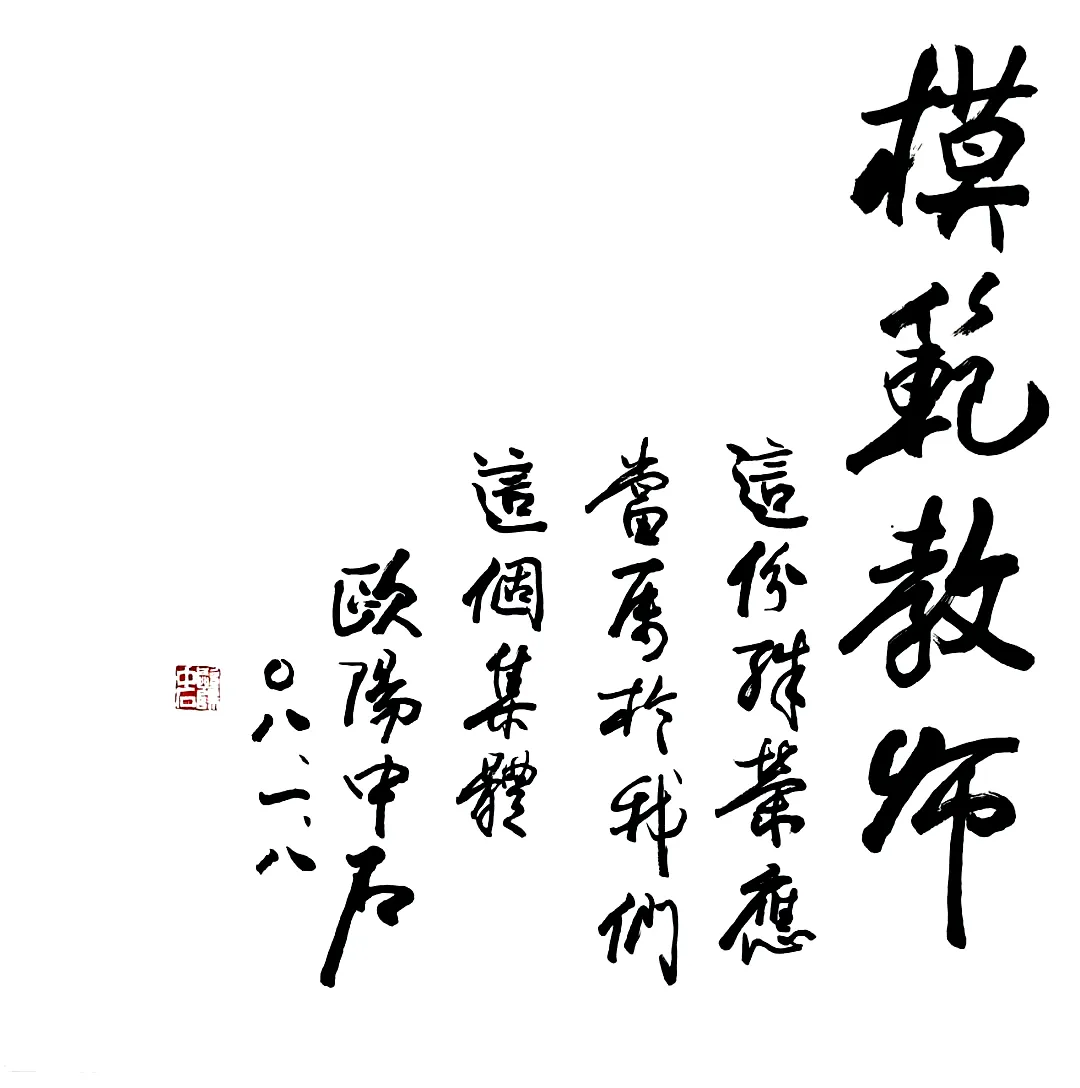 模範教師
這份殊榮應
當属於我們
這個集體
歐陽中石
〇八、一、八